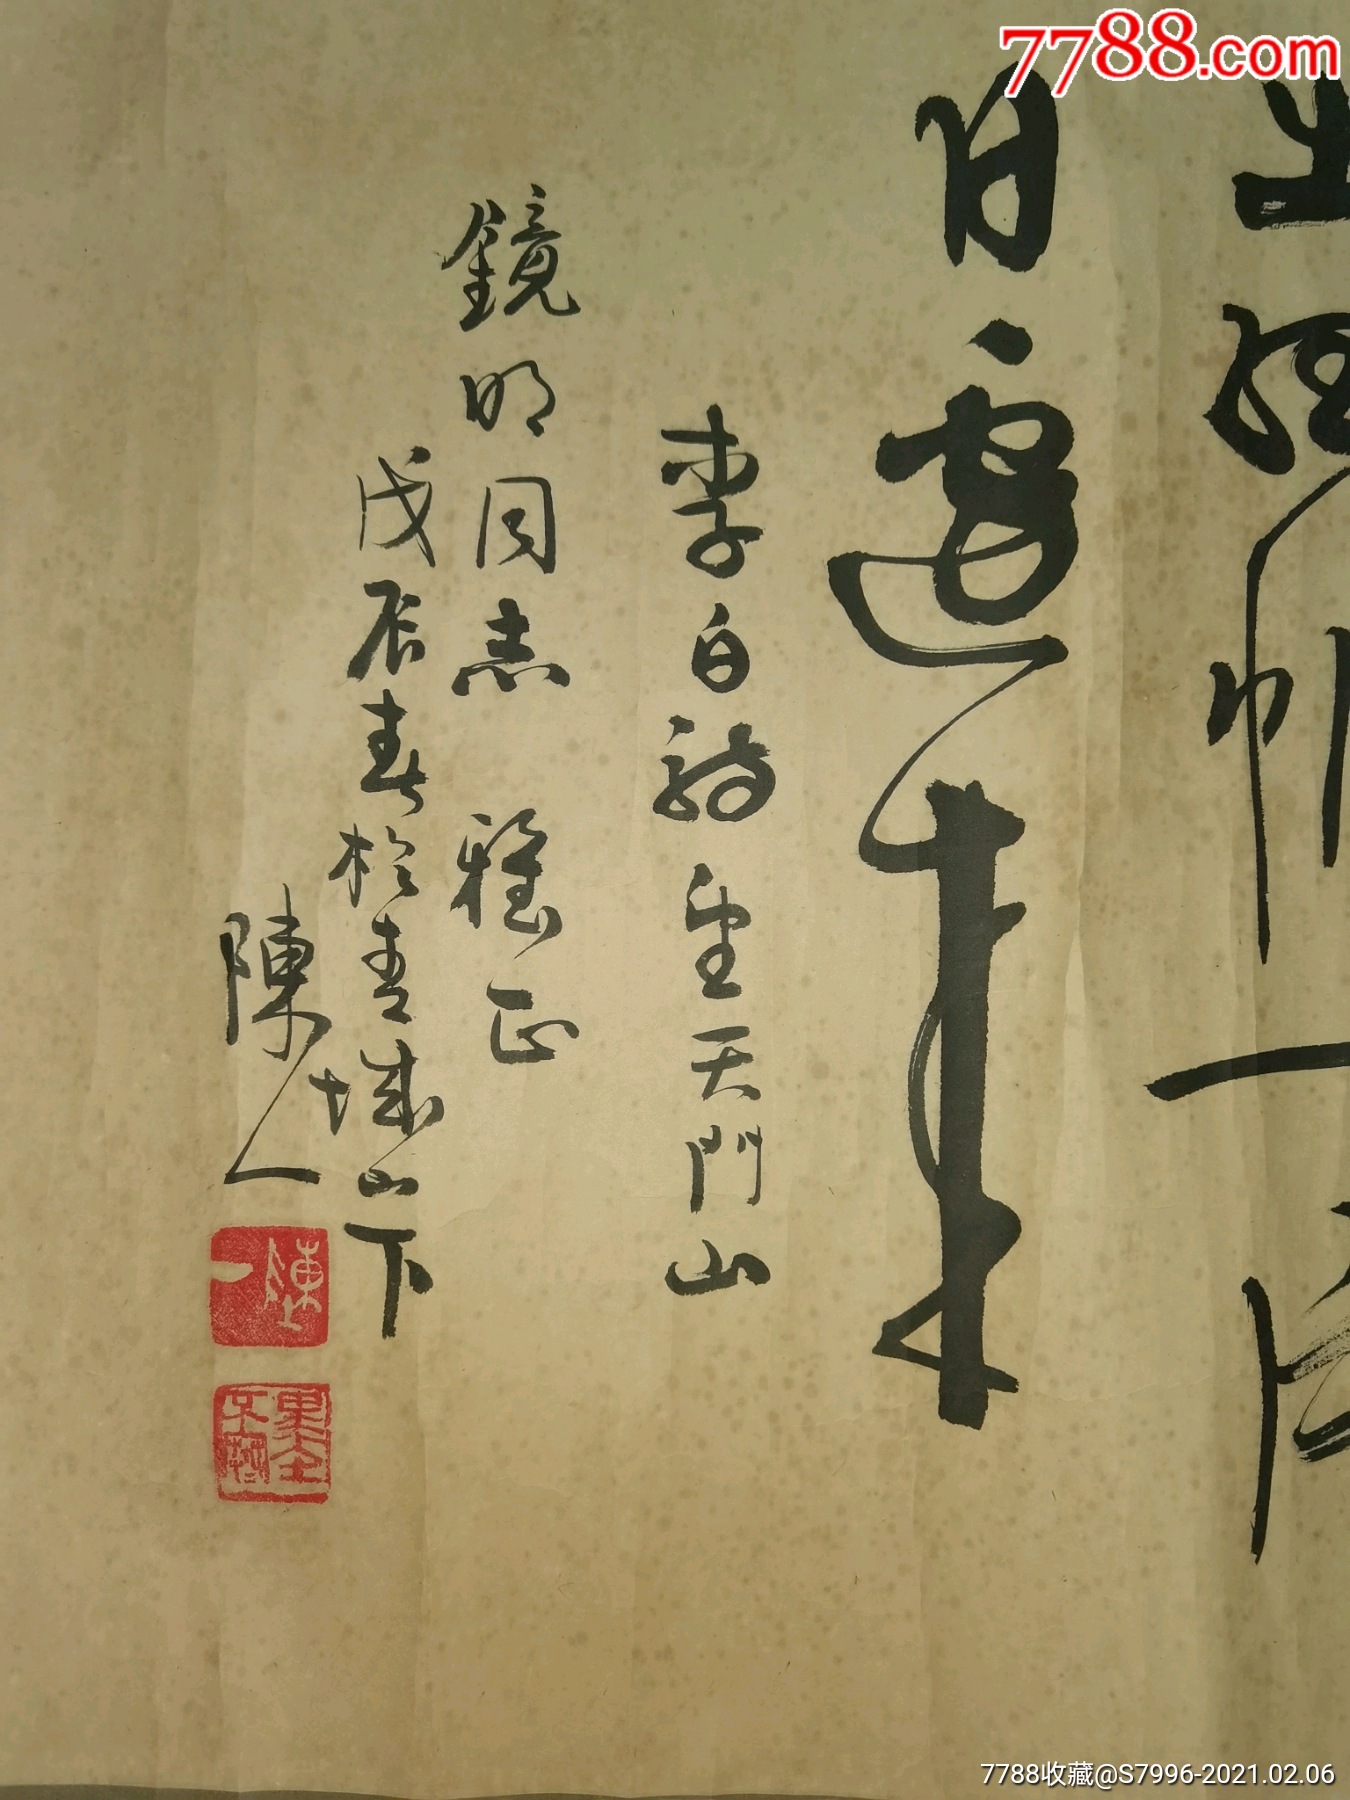 7788.com
出孤帆一片
日邊來
李白詩望天門山
鏡明同志 雅正
戊辰春於青城山下
陳
7788收藏@S7996-2021.02.06